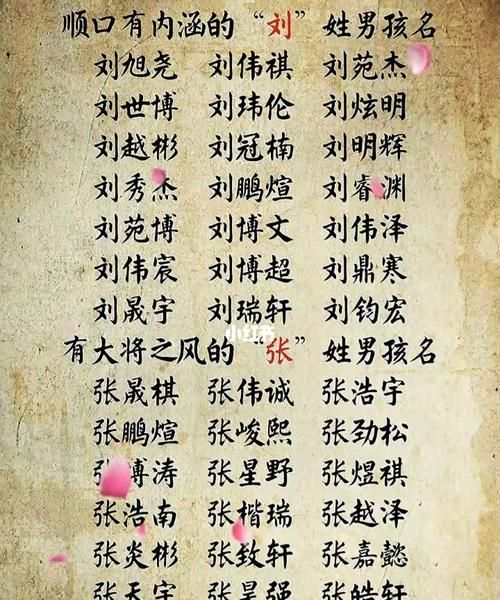 顺口有内涵的“刘”姓男孩名
刘旭尧 刘伟祺 刘苑杰
刘世博 刘玮伦 刘炫明
刘越彬 刘冠楠 刘明辉
刘秀杰 刘鹏煊 刘睿渊
刘苑博 刘博文 刘伟泽
刘伟宸 刘博超 刘鼎寒
刘晟宇 刘瑞轩 刘钧宏
小红书
有大将之风的“张”姓男孩名
张晟棋 张伟诚 张浩宇
张鹏煊 张峻熙 张劲松
张博涛 张星野 张煜祺
张浩南 张楷瑞 张越泽
张炎彬 张致轩 张嘉懿
张天宇 张昊强 张皓轩